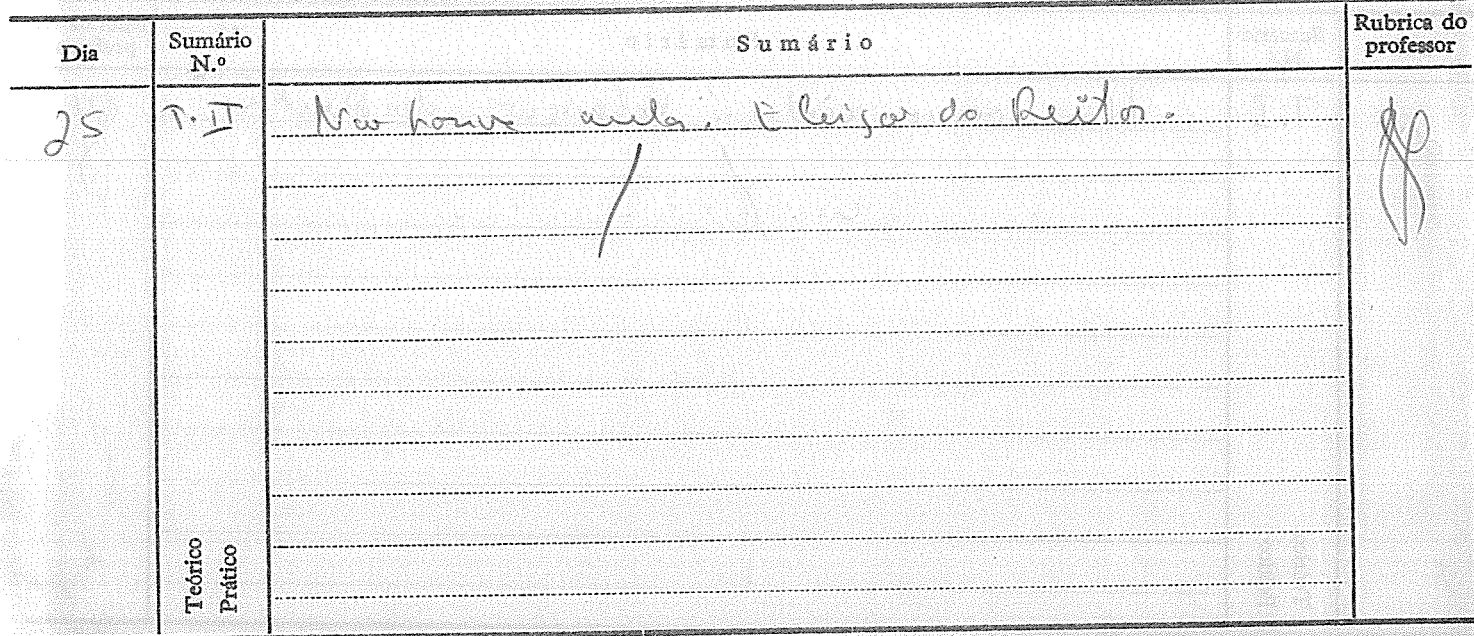 Dia Sumário N.º Sumário Rubrica do professor
25 T.II Não houve aula. Eleição do Reitor.
Teórico
Prático